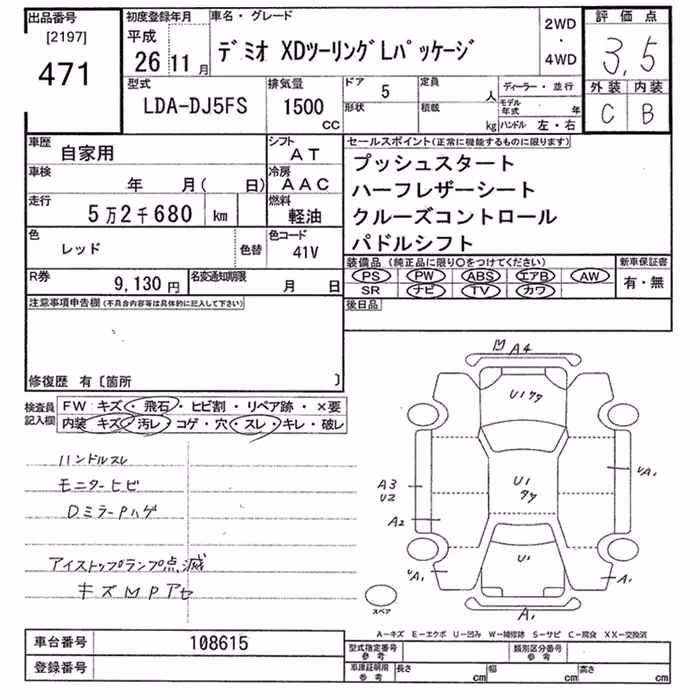 出品番号
[2197]
471
初度登録年月
平成
26 11月
車名・グレード
デミオ XDツーリングLパッケージ
2WD
・
4WD
評価点
3,5
外装 内装
C B
型式
LDA-DJ5FS
排気量
1500
CC
ドア 5
形状
定員 人
積載 kg
ディーラー・並行
モデル年式 年
ハンドル 左・右
車歴
自家用
シフト
AT
車検
年 月( 日)
冷房
AAC
走行
5万2千680 km
燃料
軽油
色
レッド
色替
色コード
41V
R券
9,130円
名変通知期限
月 日
セールスポイント(正常に機能するものに限ります)
プッシュスタート
ハーフレザーシート
クルーズコントロール
パドルシフト
装備品 (純正品に限り〇をつけてください)
PS PW ABS エアB AW
SR ナビ TV カワ
新車保証書
有・無
後日品
注意事項申告欄(不具合内容等は具体的に記入して下さい)
修復歴 有〔箇所 〕
検査員
記入欄
FW:キズ・飛石・ヒビ割・リペア跡・×要
内装 キズ・汚レ・コゲ・穴・スレ・キレ・破レ
ハンドルスレ
モニターヒビ
Dミラーハゲ
アイストップランプ点滅
キズMPアセ
凹 A4
U1 タタ
A3
U2
A2
U1
タタ
A1
U1
A1
A1
A1
スペア
A-キズ E-エクボ U-凹み W-補修跡 S-サビ C-腐食 XX-交換済
車台番号 108615
登録番号
型式指定番号
参考
類別区分番号
参考
車庫証明用
参考
長さ cm
幅 cm
高さ cm